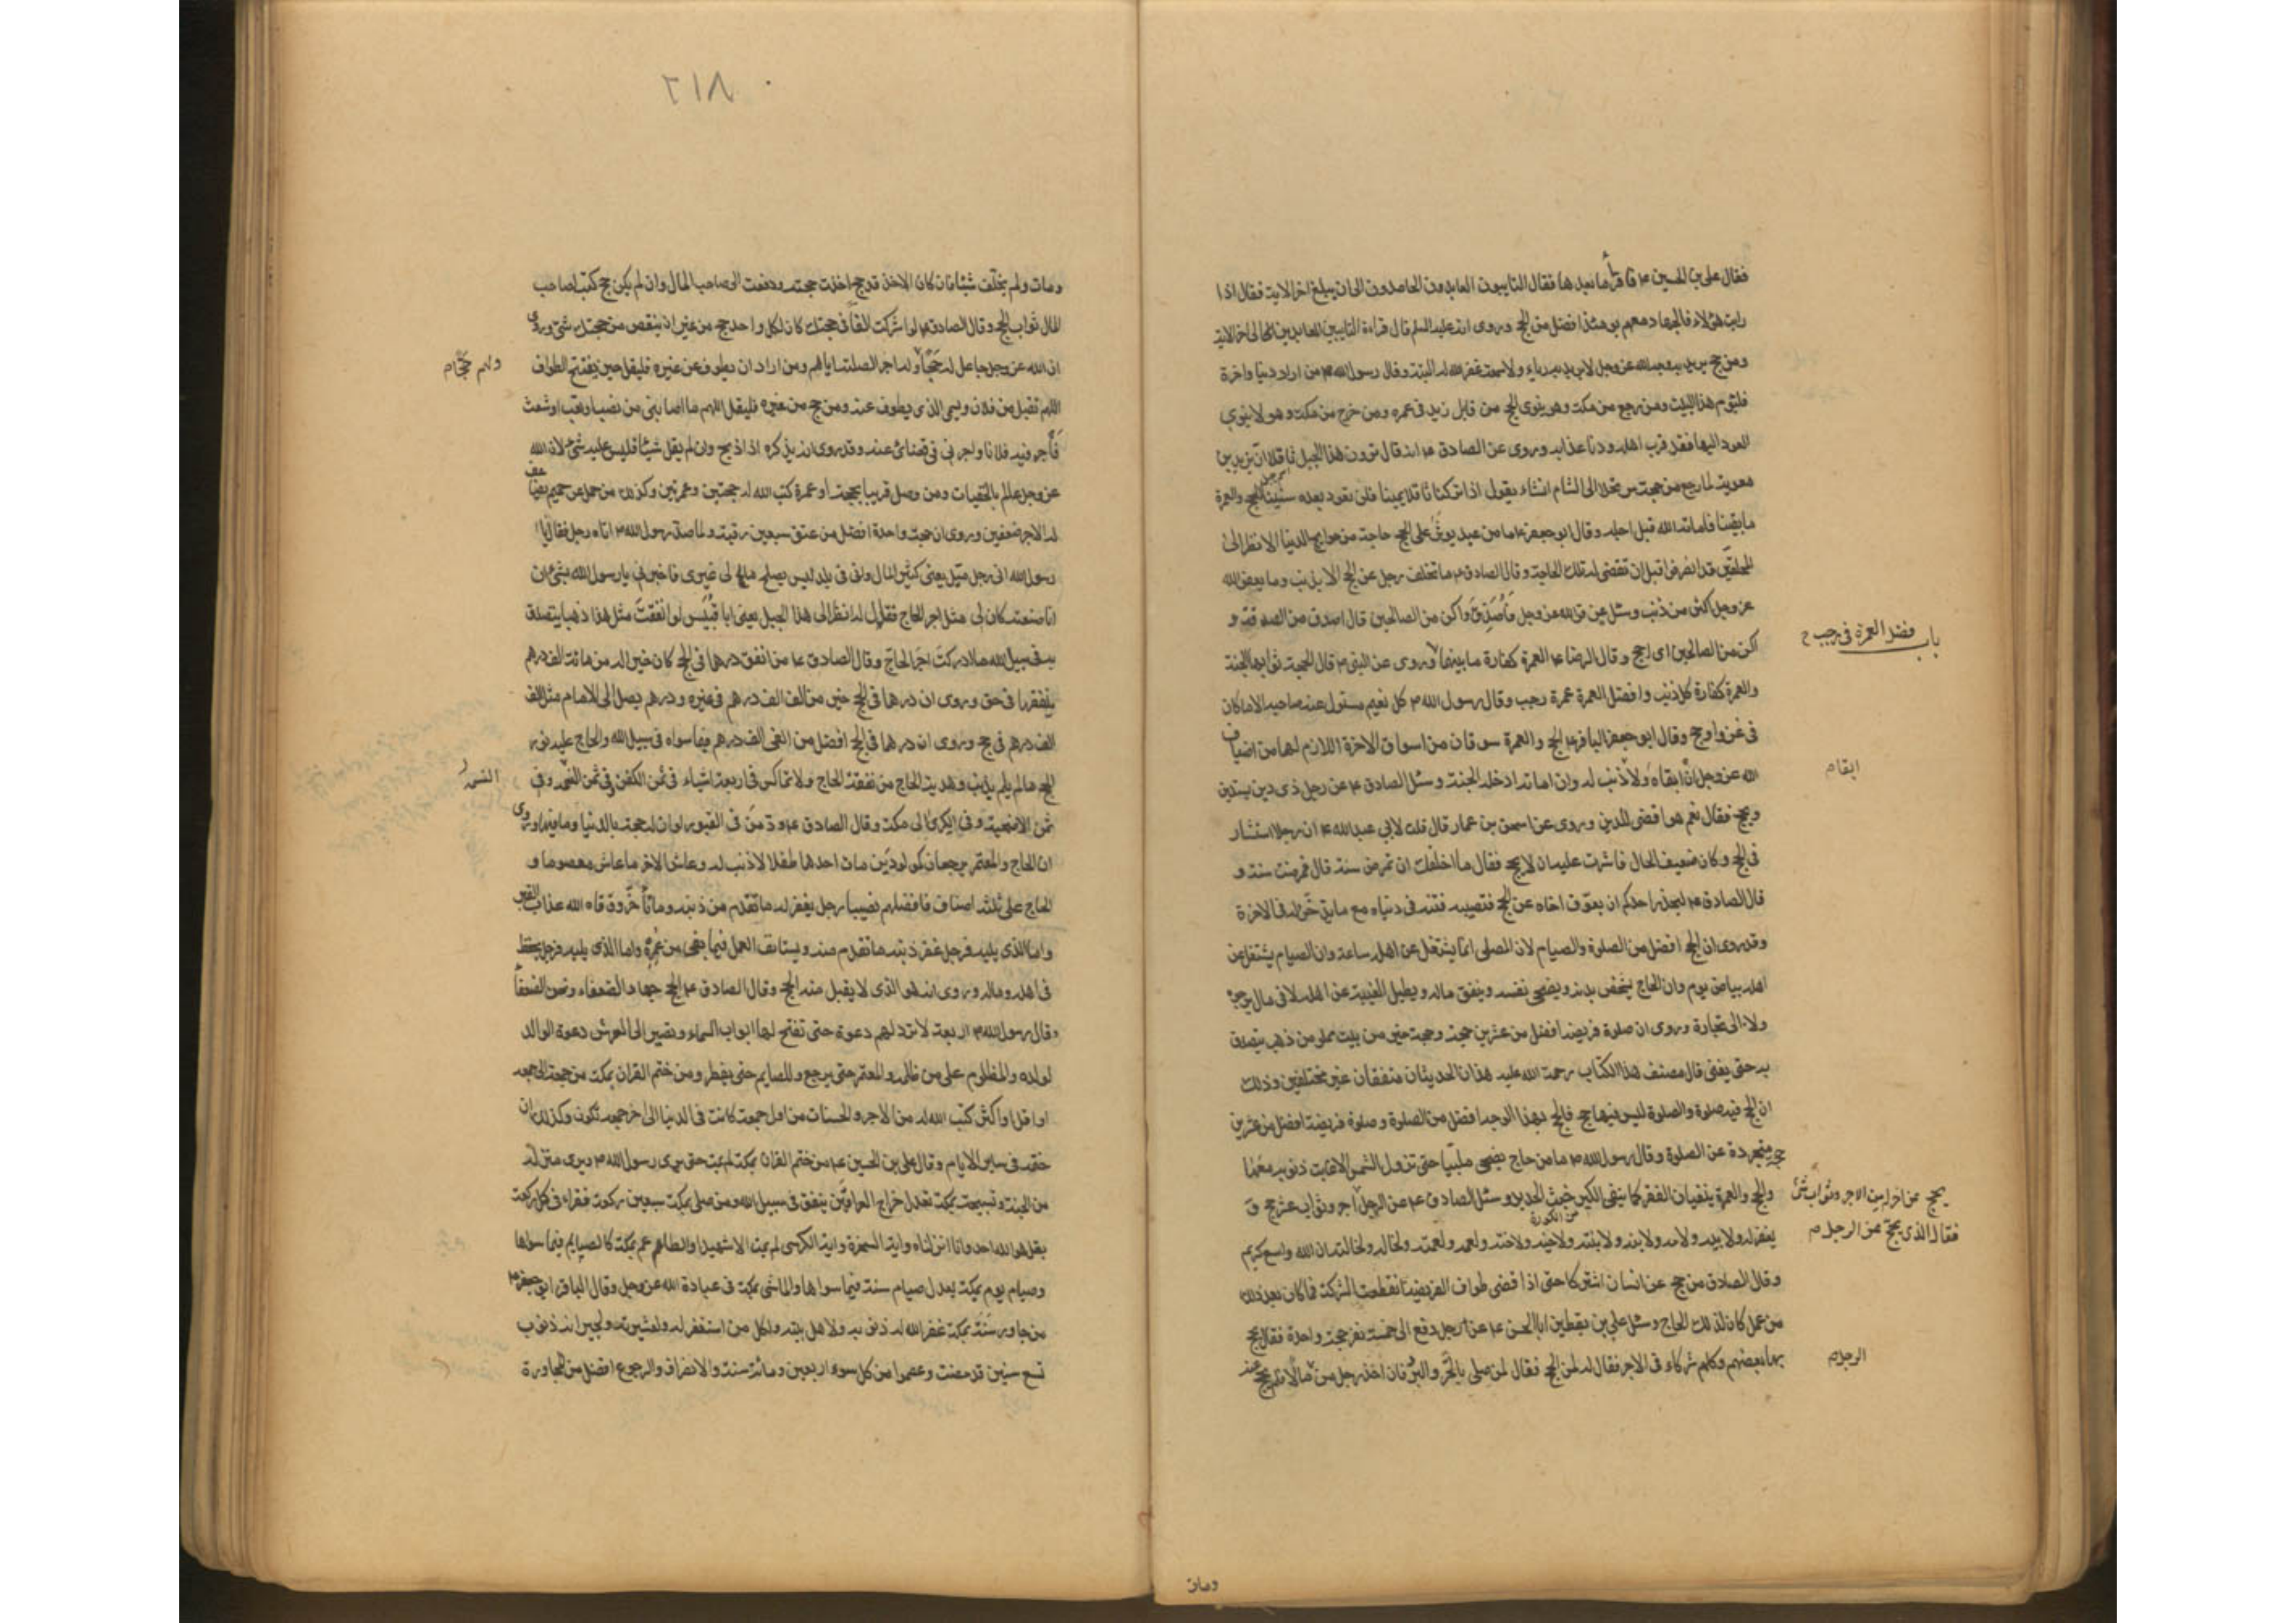 فقال علي بن الحسين ع فاقرأ ما بعدها فقال التايبون العابدون الحامدون الى ان يبلغ اخر الاية فقال اذا
رايت هؤلاء فالجهاد معهم يومئذ افضل من الحج وروى انه عليه السلم قال قراءة التايبين العابدين الى اخر الاية
ومن حج يريد به وجه الله عز وجل لا يريد به رياء ولا سمعة غفر الله له البتة وقال رسول الله ص من اراد دنيا واخرة
فليؤم هذا البيت ومن رجع من مكة وهو ينوى الحج من قابل زيد فى عمره ومن خرج من مكة وهو لا ينوي
العود اليها فقد قرب اجله ودنا عذابه وروى عن الصادق ع انه قال ترون هذا الجبل ثافلا ان يزيد بن
معوية لما رجع من حجته مرتحلا الى الشام انشاء يقول اذا تركنا ثافلا يمينا فلن نعود بعده سنينا للحج والعمرة
ما بقينا فاماته الله قبل اجله وقال ابو جعفر ع ما من عبد يوثر على الحج حاجة من حوايج الدنيا الا نظر الى
المحلقين قد انصرفوا قبل ان تقضى له تلك الحاجة وقال الصادق ع ما تخلف رجل عن الحج الا بذنب وما يعفو الله
عز وجل اكثر من ذنب وسئل عن قول الله عز وجل فأصدق واكن من الصالحين قال اصدق من الصدقة و
اكن من الصالحين اى احج وقال الرضا ع العمرة كفارة ما بينهما وروى عن النبى ص قال الحجة ثوابها الجنة
باب فضل العمرة فى رجب ح
والعمرة كفارة كل ذنب وافضل العمرة عمرة رجب وقال رسول الله ص كل نعيم مسئول عنه صاحبه الا ما كان
فى غزو او حج وقال ابو جعفر الباقر ع الحج والعمرة سوقان من اسواق الاخرة اللازم لهما من اضياف
الله عز وجل ان ابقاه ابقاه ولا ذنب له وان اماته ادخله الجنة وسئل الصادق ع عن رجل ذى دين يستدين
ابقام
ويحج فقال نعم هو اقضى للدين وروى عن اسحق بن عمار قال قلت لابي عبد الله ع ان رجلا استشار
فى الحج وكان ضعيف الحال فاشرت عليه ان لا يحج فقال ما اخلقك ان تمرض سنة قال فمرضت سنة و
قال الصادق ع ليحذر احدكم ان يعوق اخاه عن الحج فتصيبه فتنة فى دنياه مع ما يدخر له فى الاخرة
وقد روى ان الحج افضل من الصلوة والصيام لان المصلى انما يشتغل عن اهله ساعة وان الصيام يشتغل عن
اهله بياض يوم وان الحاج يشخص بدنه ويضحى نفسه وينفق ماله ويطيل الغيبة عن اهله لا فى مال يرجوه
ولا الى تجارة وروى ان صلوة فريضة افضل من عشرين حجة وحجة خير من بيت مملو من ذهب يتصدق
به حتى يفنى قال مصنف هذا الكتاب رحمة الله عليه هذان الحديثان متفقان غير مختلفين وذلك
ان الحج فيه صلوة والصلوة ليس فيها حج فالحج بهذا الوجه افضل من الصلوة وصلوة فريضة افضل من عشرين
حجة متجردة عن الصلوة وقال رسول الله ص ما من حاج يضحى ملبيا حتى تزول الشمس الا غابت ذنوبه معها
والحج والعمرة ينفيان الفقر كما ينفى الكير خبث الحديد وسئل الصادق ع عن الرجل
يحج عن اخر اله من الاجر وثواب شئ
فقال الذى يحج عن الرجل م
يغفر له ولابيه ولامه ولابنه ولابنته ولاخيه ولاخته ولعمه ولعمته ولخاله ولخالته ان الله واسع كريم
وقال الصادق من حج عن انسان اشتركا حتى اذا قضى طواف الفريضة انقطعت الشركة فما كان بعد ذلك
من عمل كان لذلك الحاج وسئل علي بن يقطين ابا الحسن ع عن رجل دفع الى خمسة نفر حجة واحدة فقال يحج
بها بعضهم وكلهم شركاء فى الاجر فقال له لمن الحج فقال لمن صلى بالحر والبرد فان اخذ رجل من مالا فلم يحج عنه
الرجل م
ومات
٨١٢
ومات ولم يخلف شيئا فان كان الاخذ قد حج اخذت حجته ودفعت الى صاحب المال وان لم يكن حج كتب لصاحب
المال ثواب الحج وقال الصادق ع لو اشركت الفا فى حجتك كان لكل واحد حج من غير ان ينقص من حجتك شئ وروى
ان الله عز وجل جاعل له حجا وله اجر الصلته اياهم ومن اراد ان يطوف عن غيره فليقل حين يفتتح الطواف
ولهم حج م
اللهم تقبل من فلان ويسمى الذى يطوف عنه ومن حج عن غيره فليقل اللهم ما اصابنى من نصب او تعب او شعث
فأجر فيه فلانا واجرنى فى قضائى عنه وقد روى انه يذكره اذا ذبح وان لم يقل شيئا فليس عليه شئ لان الله
عز وجل عالم بالخفيات ومن وصل قريبا بحجة او عمرة كتب الله له حجتين وعمرتين وكذلك من حمل عن حميم يضاعف
له الاجر ضعفين وروى ان حجة واحدة افضل من عتق سبعين رقبة ولما صد رسول الله ص اتاه رجل فقال يا
رسول الله انى رجل ميل يعنى كثير المال وانى فى بلد ليس يصلح مالى غيرى فاخبرنى يا رسول الله بشئ ان
انا صنعته كان لى مثل اجر الحاج فقال له انظر الى هذا الجبل يعنى ابا قبيس لو انفقت مثل هذا ذهبا يتصدق
به فى سبيل الله ما ادركت اجر الحاج وقال الصادق ع من انفق درهما فى الحج كان خيرا له من مائة الف درهم
ينفقها فى حق وروى ان درهما فى الحج خير من الف الف درهم فى غيره ودرهم يصل الى الامام مثل الف
الف درهم فى حج وروى ان درهما فى الحج افضل من الفى الف درهم فيما سواه فى سبيل الله والحاج عليه نور
الحج ما لم يلم بذنب وهدية الحاج من نفقة الحاج ولا تماكس فى اربعة اشياء فى ثمن الكفن وفى ثمن النسمة وفى
ثمن الاضحية وفى الكرى الى مكة وقال الصادق ع ود من فى القبور لو ان له حجة بالدنيا وما فيها وروى
ان الحاج والمعتمر يرجعان كمولودين مات احدهما طفلا لا ذنب له وعاش الاخر ما عاش معصوما و
الحاج على ثلثة اصناف فافضلهم نصيبا رجل يغفر له ما تقدم من ذنبه وما تأخر وقاه الله عذاب القبر
واما الذى يليه فرجل غفر ذنبه ما تقدم منه ويستانف العمل فيما بقى من عمره واما الذى يليه فرجل يحفظ
فى اهله وماله وروى انه هو الذى لا يقبل منه الحج وقال الصادق ع الحج جهاد الضعفاء ونحن الضعفا
وقال رسول الله ص اربعة لا ترد لهم دعوة حتى تفتح لها ابواب السماء وتصير الى العرش دعوة الوالد
لولده والمظلوم على من ظلمه والمعتمر حتى يرجع وللصايم حتى يفطر ومن ختم القران بمكة من جمعة الى جمعة
او اقل او اكثر كتب الله له من الاجر والحسنات من اول جمعة كانت فى الدنيا الى اخر جمعة تكون وكذلك ان
ختمه فى ساير الايام وقال علي بن الحسين ع من ختم القران بمكة لم يمت حتى يرى رسول الله ص ويرى منزله
من الجنة وتسبيحة بمكة تعدل خراج العراقين ينفق فى سبيل الله ومن صلى بمكة سبعين ركعة فقراء فى كل ركعة
بقل هو الله احد وانا انزلناه واية السخرة واية الكرسى لم يمت الا شهيدا والطاعم بمكة كالصايم فيما سواها
وصيام يوم بمكة يعدل صيام سنة فيما سواها والماشى بمكة فى عبادة الله عز وجل وقال الباقر ابو جعفر ع
من جاور سنة بمكة غفر الله له ذنوبه ولاهل بيته ولكل من استغفر له ولعشيرته ولجيرانه ذنوب
تسع سنين قد مضت وعصموا من كل سوء اربعين ومائة سنة والانصراف والرجوع افضل من المجاورة